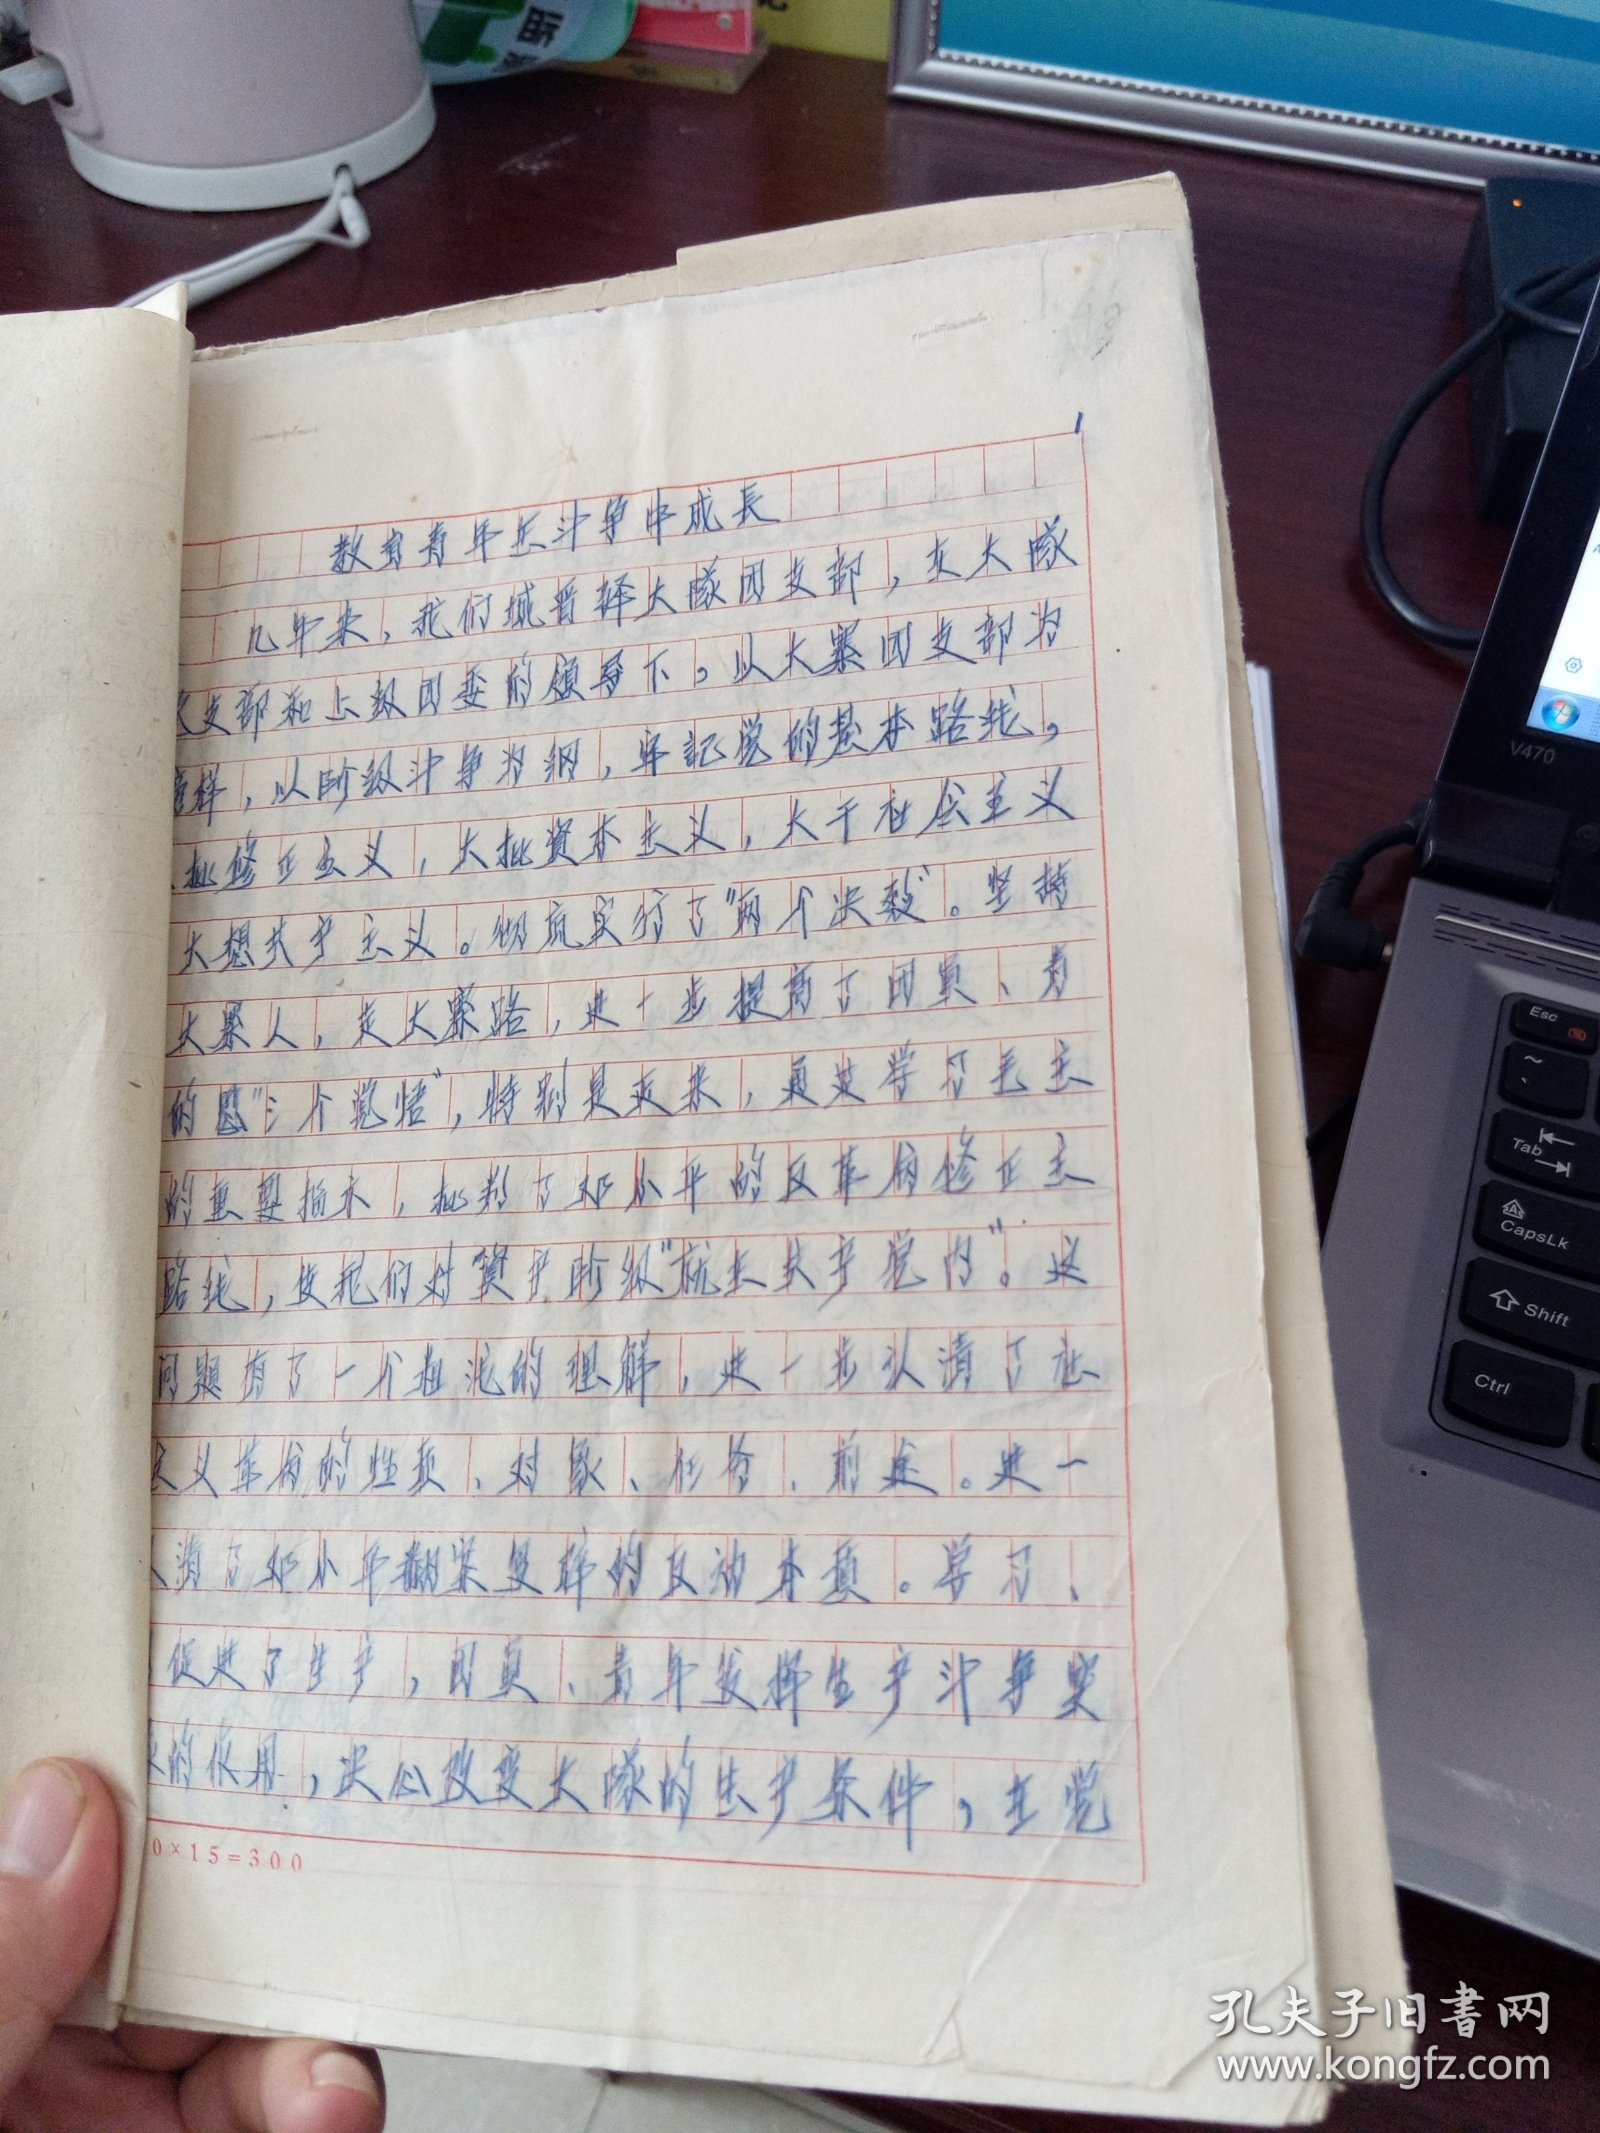 1
教育青年在斗争中成长
几年来，我们城晋驿大队团支部，在大队
支部和上级团委的领导下，以大寨团支部为
榜样，以阶级斗争为纲，牢记党的基本路线，
批修正主义，大批资本主义，大干社会主义
大想共产主义。彻底实行了“两个决裂”。坚持
大寨人，走大寨路，进一步提高了团员、青
的“三个觉悟”，特别是近来，通过学习毛主
的重要指示，批判了邓小平的反革命修正主
路线，使我们对“资产阶级”就在共产党内”。这
问题有了一个粗浅的理解，进一步认清了社
主义革命的性质、对象、任务、前途。进一
清了邓小平翻案复辟的反动本质。学习、
促进了生产，团员、青年发挥生产斗争突
的作用，决心改变大队的生产条件，在党
0×15=300
V470
Esc
Tab
CapsLk
Shift
Ctrl
孔夫子旧书网
www.kongfz.com